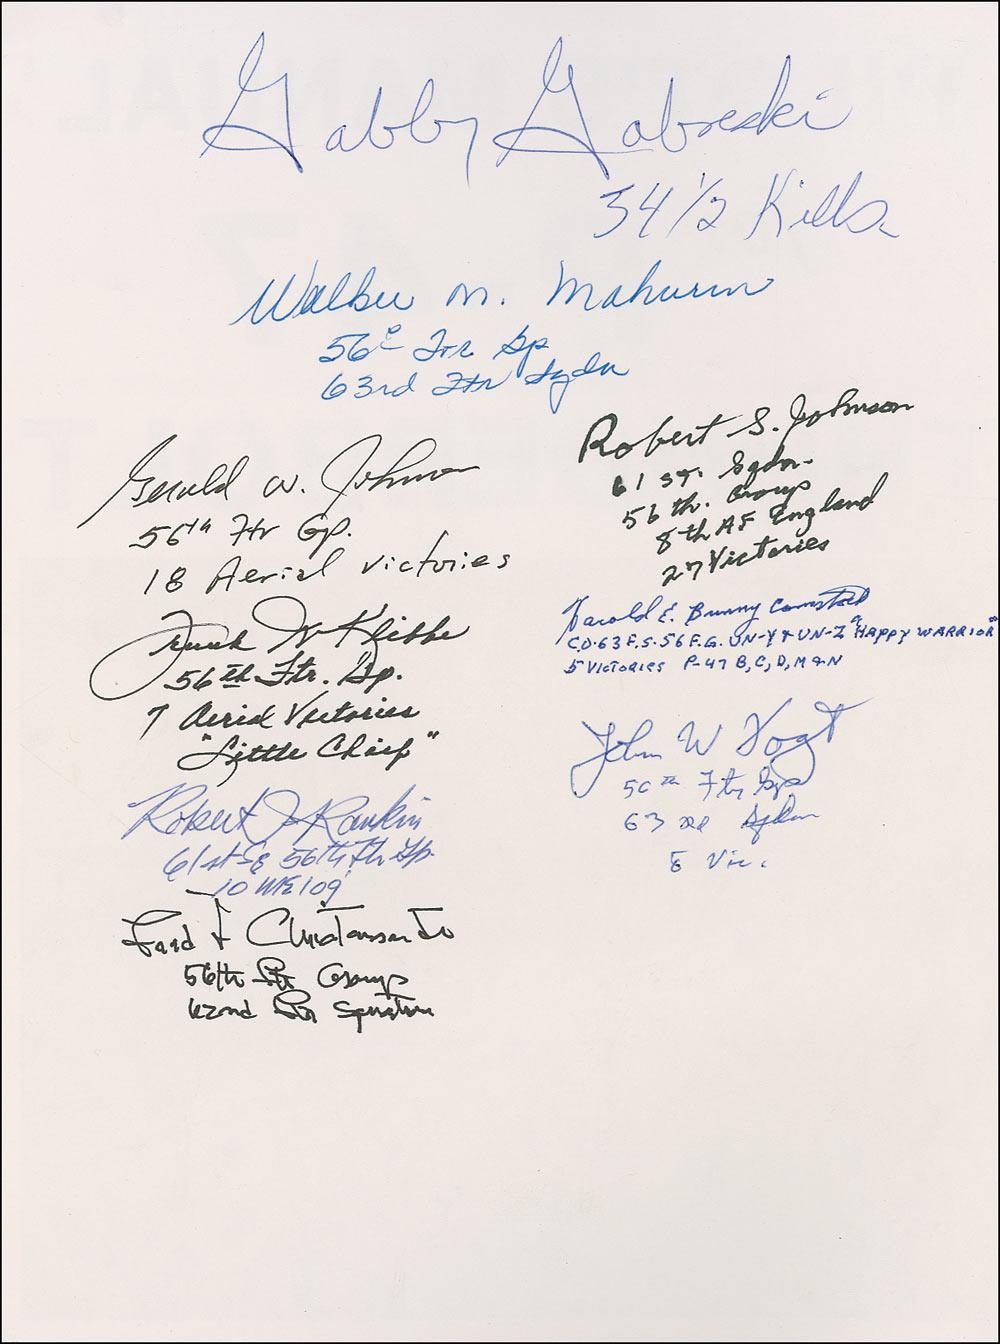 Gabby Gabreski
34 1/2 Kills
Walker M. Mahurin
56th Ftr Gp
63rd Ftr Sqdn
Gerald W. Johnson
56th Ftr Gp.
18 Aerial victories
Frank W Klibbe
56th Ftr. Gp.
7 Aerial Victories
"Little Chief"
Robert J Rankin
61st Sq 56th Ftr Gp.
10 ME109
Fred J Christensen Jr
56th Ftr Group
62nd Ftr Squadron
Robert S. Johnson
61 st. Sqdn.
56 th. Group
8th AF England
27 Victories
Harold E. Bunny Comstock
C.O. 63 F.S. 56 F.G. UN-Y & UN-Z "HAPPY WARRIOR"
5 VICTORIES P-47 B, C, D, M & N
John W Vogt
56th Ftr Gp
63 rd Sqdn
8 Vic.